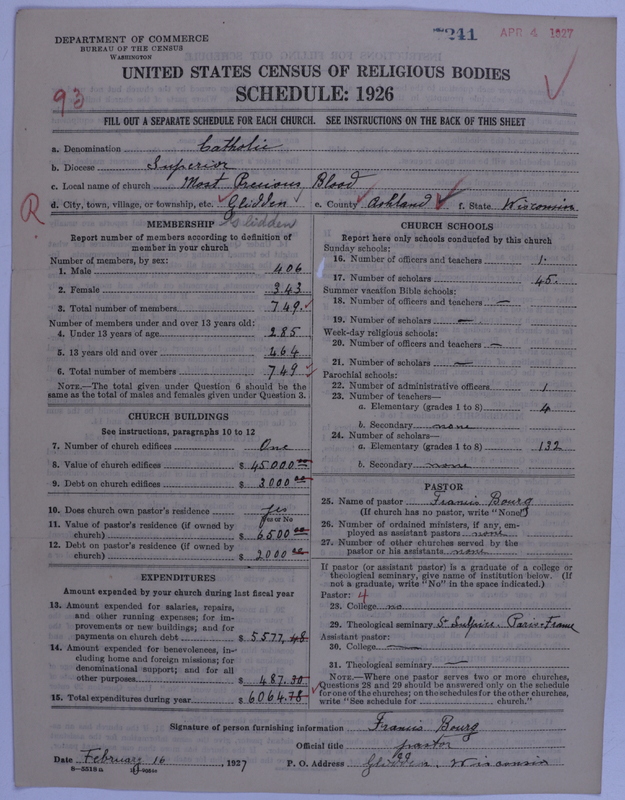 DEPARTMENT OF COMMERCE
BUREAU OF THE CENSUS
WASHINGTON
241
APR 4 1927
UNITED STATES CENSUS OF RELIGIOUS BODIES
SCHEDULE: 1926
93
FILL OUT A SEPARATE SCHEDULE FOR EACH CHURCH. SEE INSTRUCTIONS ON THE BACK OF THIS SHEET
a. Denomination Catholic
b. Diocese Superior
c. Local name of church Most Precious Blood
d. City, town, village, or township, etc. Glidden e. County Ashland f. State Wisconsin
R
Glidden
MEMBERSHIP
Report number of members according to definition of
member in your church
Number of members, by sex:
1. Male 406
2. Female 343
3. Total number of members 749
Number of members under and over 13 years old:
4. Under 13 years of age 285
5. 13 years old and over 464
6. Total number of members 749
NOTE.—The total given under Question 6 should be the
same as the total of males and females given under Question 3.
CHURCH BUILDINGS
See instructions, paragraphs 10 to 12
7. Number of church edifices One
8. Value of church edifices $ 45000 00
9. Debt on church edifices $ 3000 00
10. Does church own pastor's residence yes
Yes or No
11. Value of pastor's residence (if owned by
church) $ 6500 00
12. Debt on pastor's residence (if owned by
church) $ 2000 00
EXPENDITURES
Amount expended by your church during last fiscal year
13. Amount expended for salaries, repairs,
and other running expenses; for im-
provements or new buildings; and for
payments on church debt $ 5577.48
14. Amount expended for benevolences, in-
cluding home and foreign missions; for
denominational support; and for all
other purposes $ 487.30
15. Total expenditures during year $ 6064.78
CHURCH SCHOOLS
Report here only schools conducted by this church
Sunday schools:
16. Number of officers and teachers 1.
17. Number of scholars 45.
Summer vacation Bible schools:
18. Number of officers and teachers —
19. Number of scholars —
Week-day religious schools:
20. Number of officers and teachers —
21. Number of scholars —
Parochial schools:
22. Number of administrative officers 1
23. Number of teachers—
a. Elementary (grades 1 to 8) 4
b. Secondary none
24. Number of scholars—
a. Elementary (grades 1 to 8) 132
b. Secondary none
PASTOR
25. Name of pastor Francis Bourg
(If church has no pastor, write "None")
26. Number of ordained ministers, if any, em-
ployed as assistant pastors none
27. Number of other churches served by the
pastor or his assistants none
If pastor (or assistant pastor) is a graduate of a college or
theological seminary, give name of institution below. (If
not a graduate, write "No" in the space indicated.)
Pastor: 4
28. College no
29. Theological seminary St Sulpice. Paris-France
Assistant pastor:
30. College —
31. Theological seminary —
NOTE.—Where one pastor serves two or more churches,
Questions 28 and 29 should be answered only on the schedule
for one of the churches; on the schedules for the other churches,
write "See schedule for church."
Signature of person furnishing information Francis Bourg
Official title pastor
Date February 16, 1927 P. O. Address Glidden, Wisconsin
8—5518a